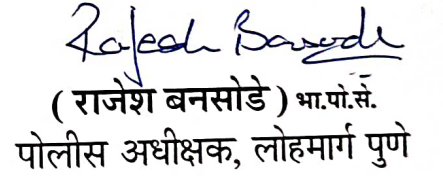 Rajesh Bansode
( राजेश बनसोडे ) भा.पो.से.
पोलीस अधीक्षक, लोहमार्ग पुणे